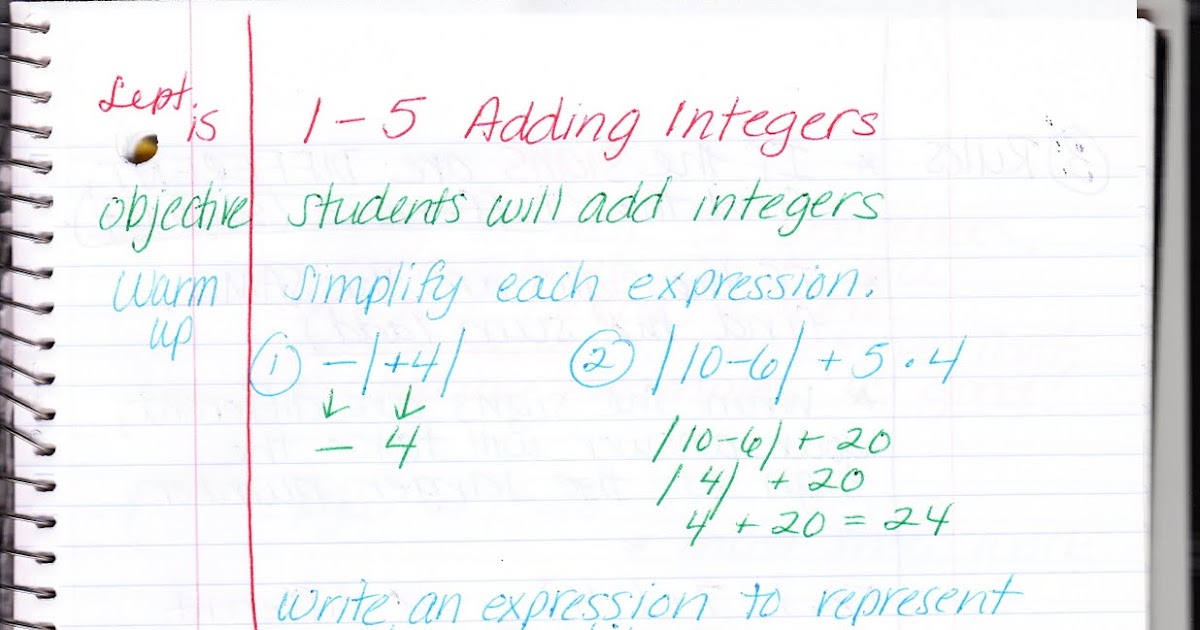 Sept. 15
1-5 Adding Integers
objective students will add integers
Warm up Simplify each expression.
① -|+4| ② |10-6| + 5 · 4
↓ ↓
- 4 |10-6| + 20
|4| + 20
4 + 20 = 24
Write an expression to represent